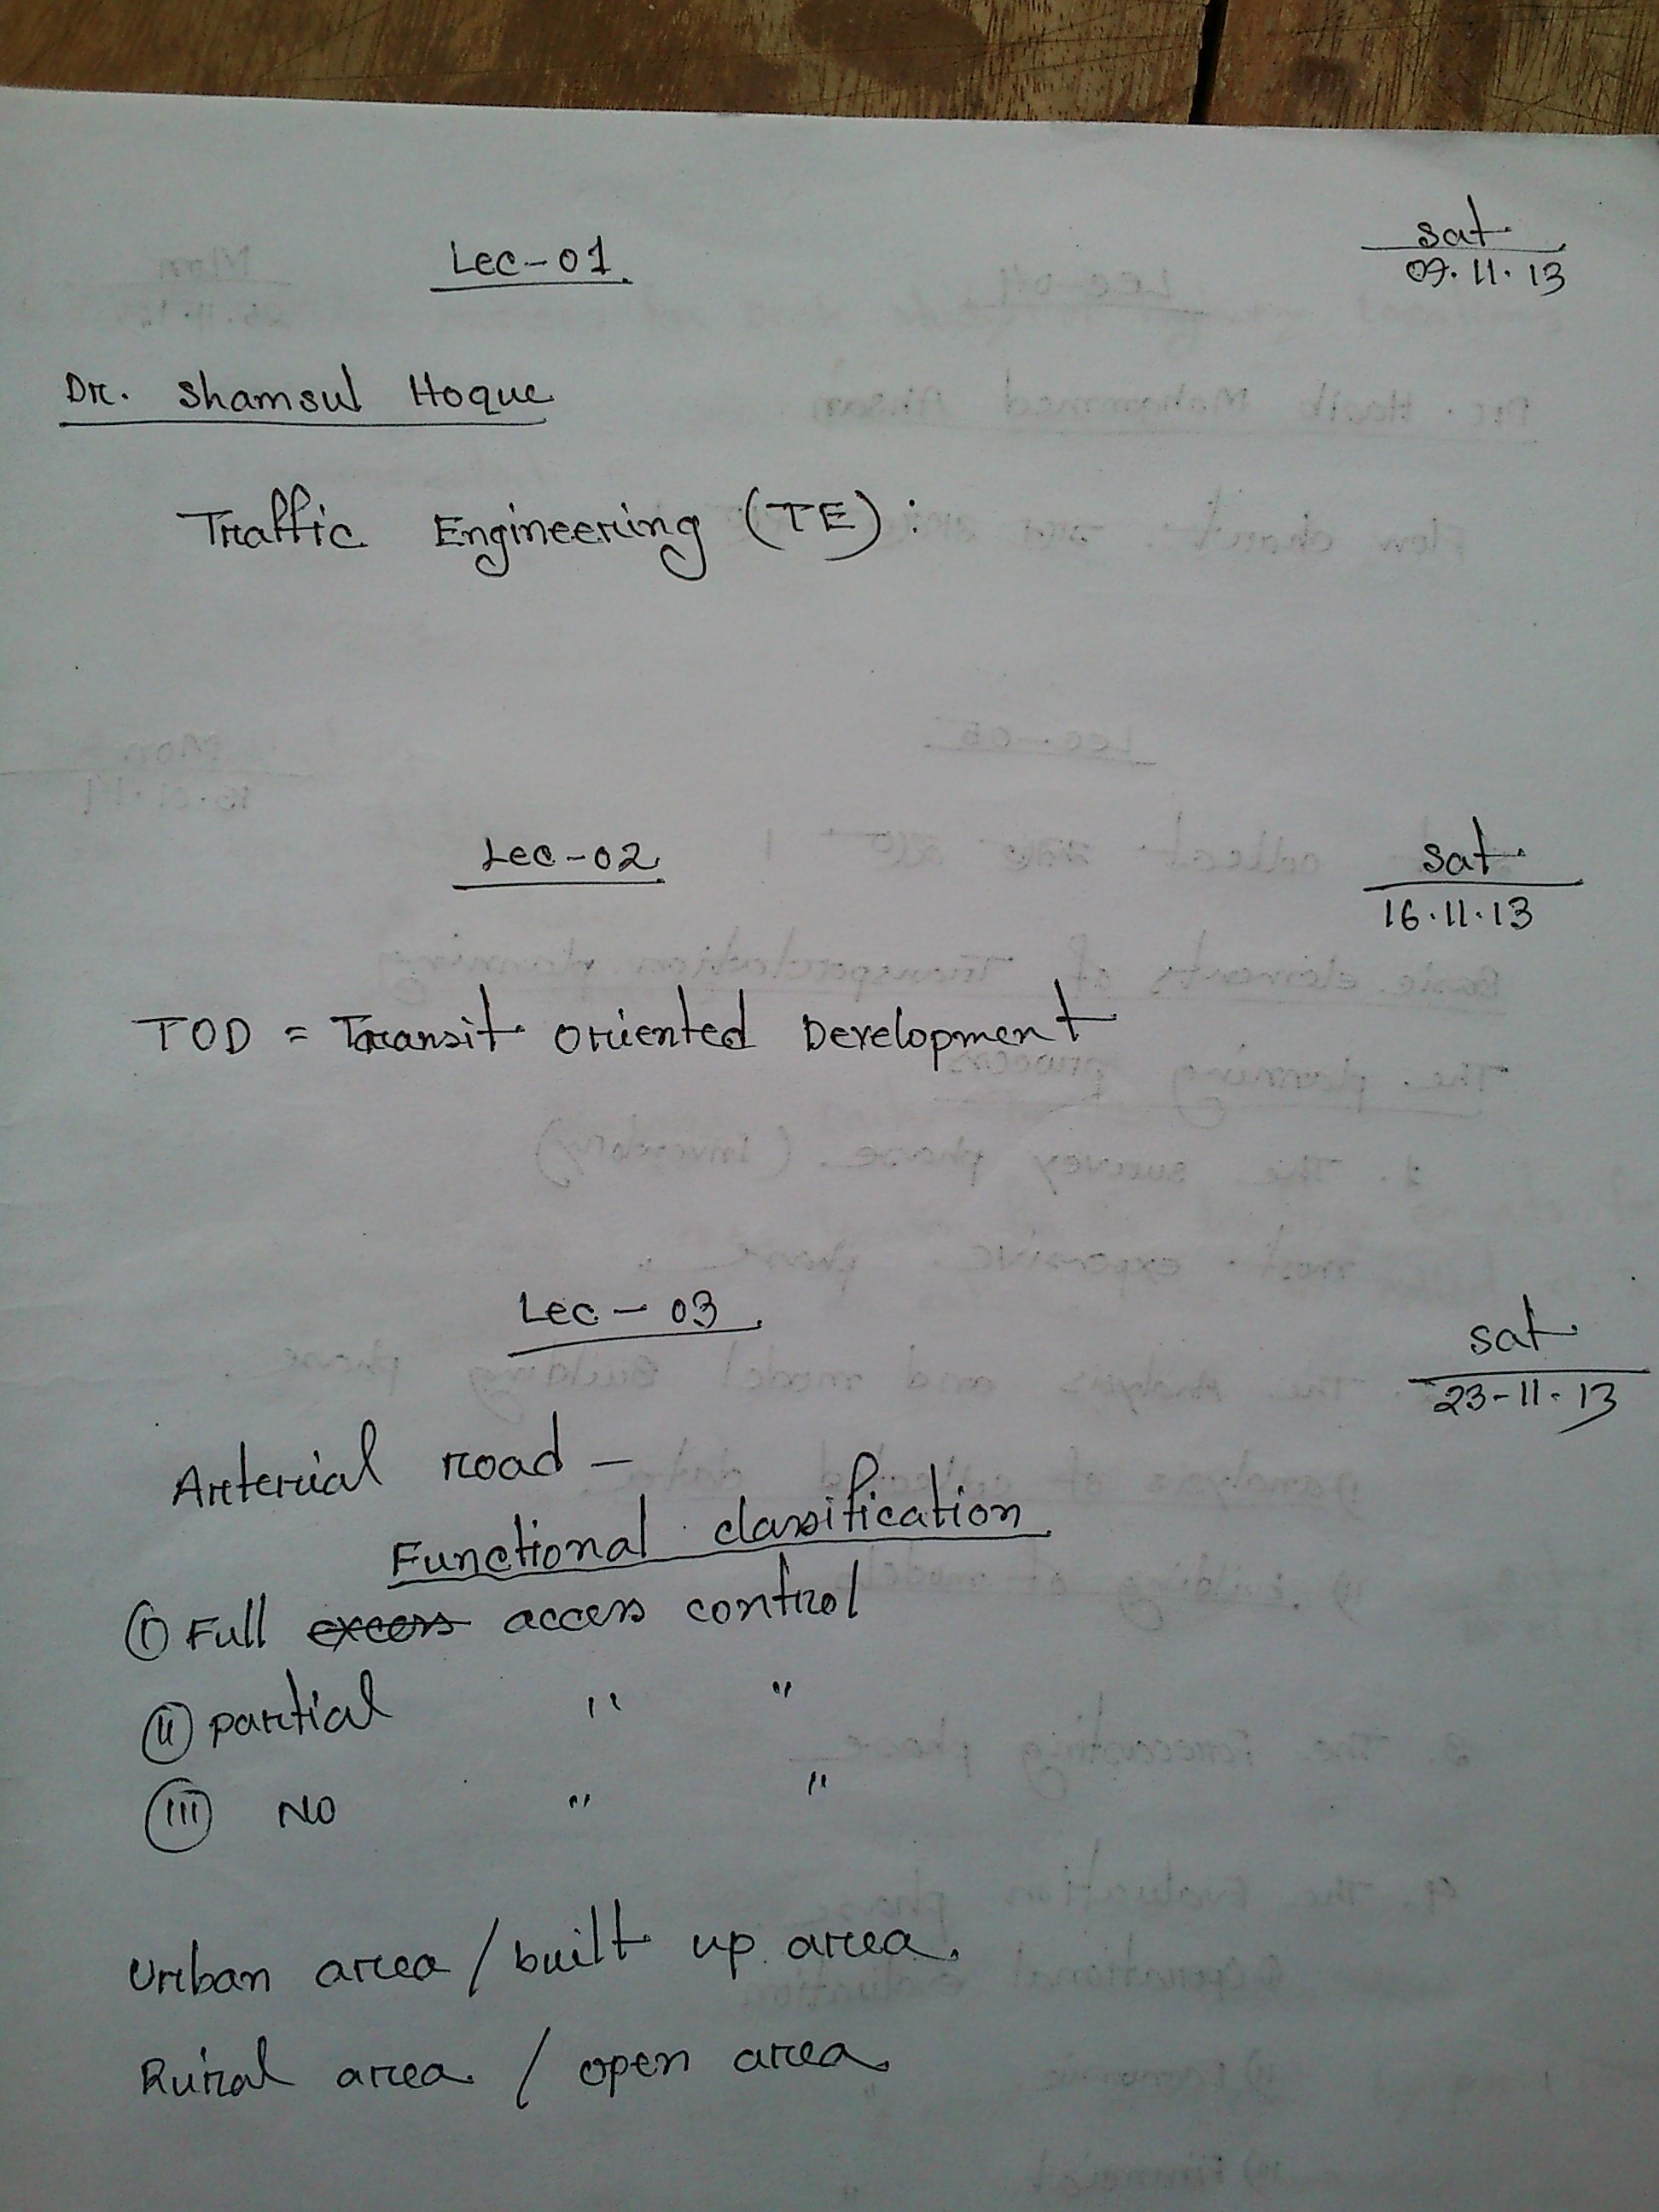 Lec-01
Sat
09.11.13
Dr. Shamsul Hoque
Traffic Engineering (TE):
Lec-02
Sat
16.11.13
TOD = Transit Oriented Development
Lec-03
Sat
23-11-13
Arterial road -
Functional classification
(i) Full excess access control
(ii) partial " "
(iii) No " "
Urban area / built up area.
Rural area / open area